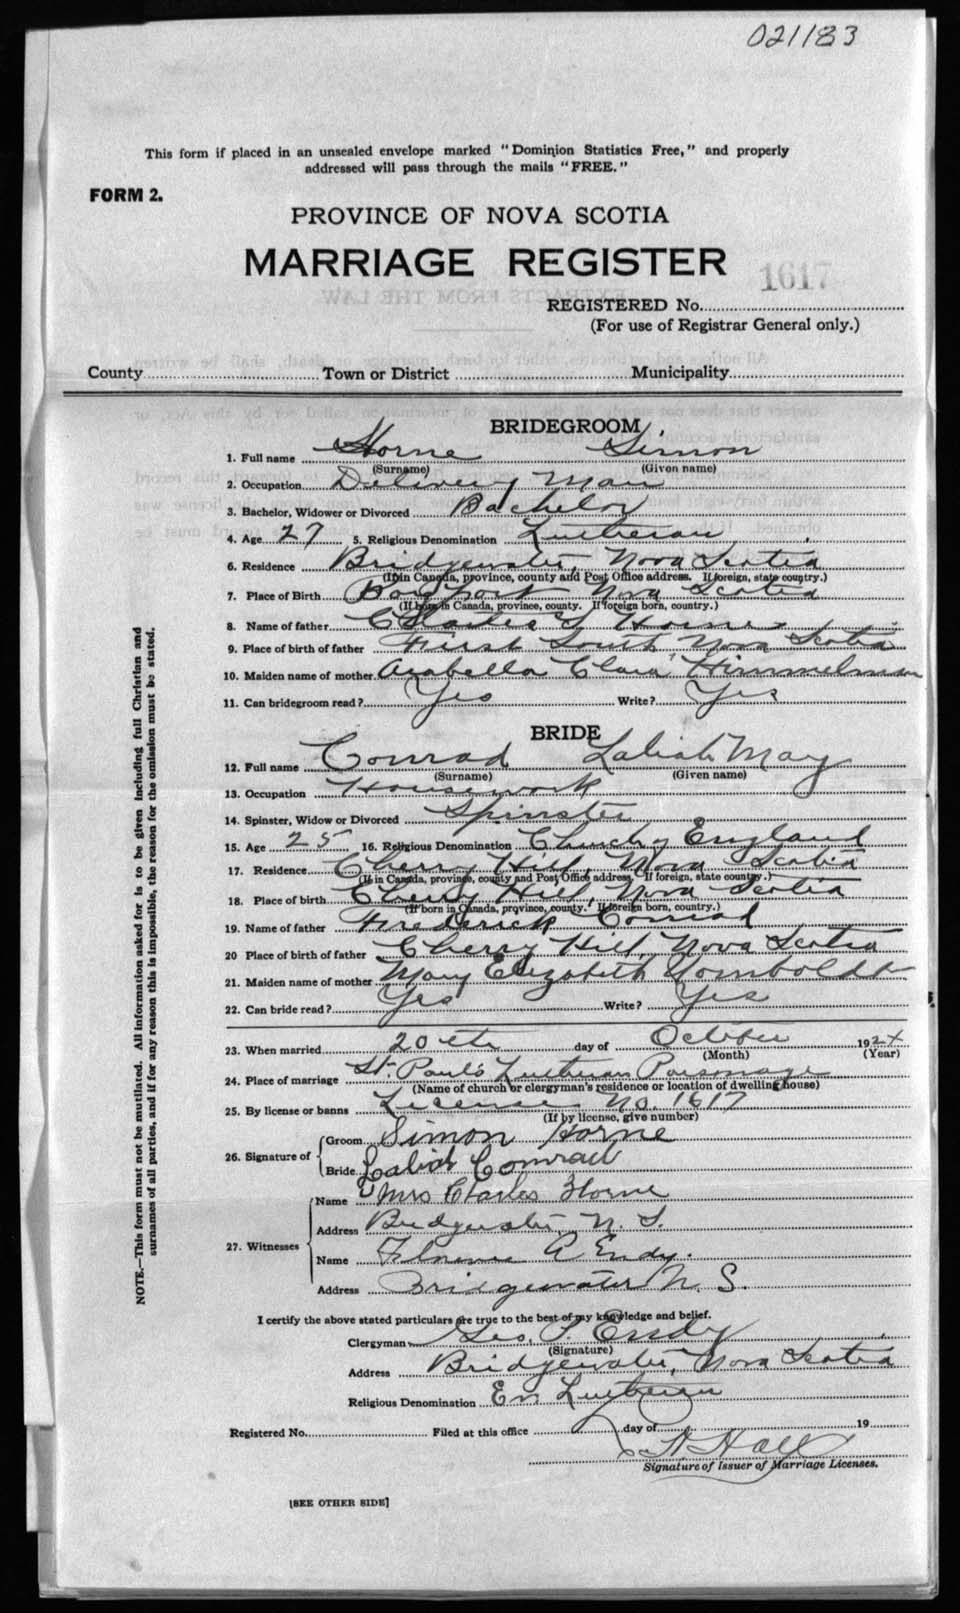 021183
This form if placed in an unsealed envelope marked "Dominion Statistics Free," and properly
addressed will pass through the mails "FREE."
FORM 2.
PROVINCE OF NOVA SCOTIA
MARRIAGE REGISTER
1617
REGISTERED No.
(For use of Registrar General only.)
County Town or District Municipality
BRIDEGROOM
1. Full name Horne Simon
(Surname) (Given name)
2. Occupation Delivery Man
3. Bachelor, Widower or Divorced Bachelor
4. Age 27 5. Religious Denomination Lutheran
6. Residence Bridgewater, Nova Scotia
(If in Canada, province, county and Post Office address. If foreign, state country.)
7. Place of Birth Bayport Nova Scotia
(If born in Canada, province, county. If foreign born, country.)
8. Name of father Charles Horne
9. Place of birth of father First South Nova Scotia
10. Maiden name of mother Arabella Clara Himmelman
11. Can bridegroom read? Yes Write? Yes
BRIDE
12. Full name Conrad Laliah May
(Surname) (Given name)
13. Occupation Housework
14. Spinster, Widow or Divorced Spinster
15. Age 25 16. Religious Denomination Church England
17. Residence Cherry Hill, Nova Scotia
(If in Canada, province, county and Post Office address. If foreign, state country.)
18. Place of birth Cherry Hill, Nova Scotia
(If born in Canada, province, county. If foreign born, country.)
19. Name of father Frederick Conrad
20 Place of birth of father Cherry Hill, Nova Scotia
21. Maiden name of mother Mary Elizabeth
22. Can bride read? Yes Write? Yes
23. When married 20eth day of October 1924
(Month) (Year)
24. Place of marriage St. Paul's Lutheran Parsonage
(Name of church or clergyman's residence or location of dwelling house)
25. By license or banns License No. 1617
(If by license, give number)
26. Signature of Groom Simon Horne
Bride Laliah Conrad
27. Witnesses Name Mrs Charles Horne
Address Bridgewater, N. S.
Name Florence A Endy.
Address Bridgewater N. S.
I certify the above stated particulars are true to the best of my knowledge and belief.
Clergyman Geo. P. Endy
(Signature)
Address Bridgewater, Nova Scotia
Religious Denomination Ev Lutheran
Registered No. Filed at this office day of 19
Hall
Signature of Issuer of Marriage Licenses.
[SEE OTHER SIDE]
NOTE.—This form must not be mutilated. All information asked for is to be given including full Christian and
surnames of all parties, and if for any reason this is impossible, the reason for the omission must be stated.